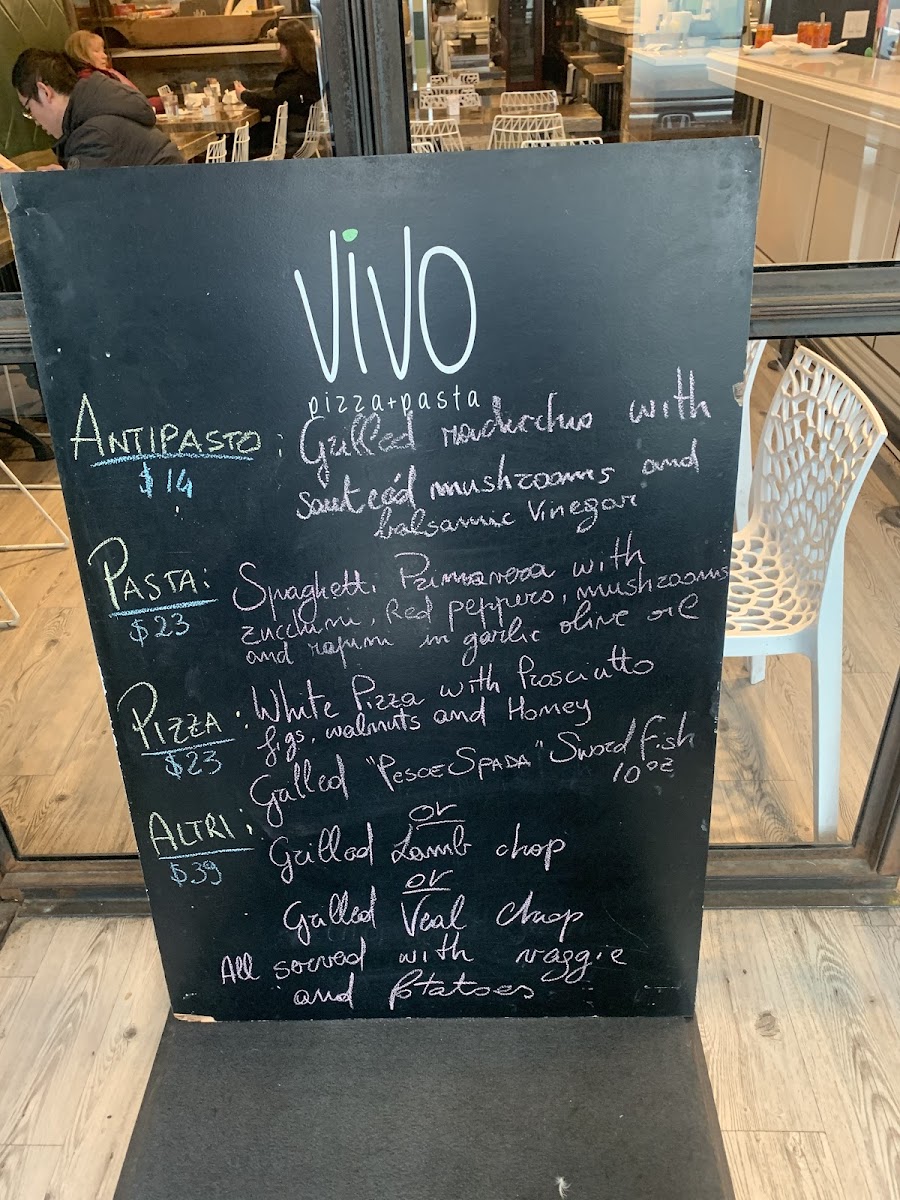 vivo
pizza+pasta
ANTIPASTO : Grilled radicchio with
$14
sauteéd mushrooms and
balsamic Vinegar
PASTA: Spaghetti Primavera with
$23
zucchini, Red peppers, mushrooms
and rapini in garlic olive oil
PIZZA : White Pizza with Prosciutto
$23
figs, walnuts and Honey
ALTRI : Grilled "PESCE SPADA" Sword fish
$39
10 oz
or
Grilled Lamb chop
or
Grilled Veal Chop
All served with veggie
and Potatoes